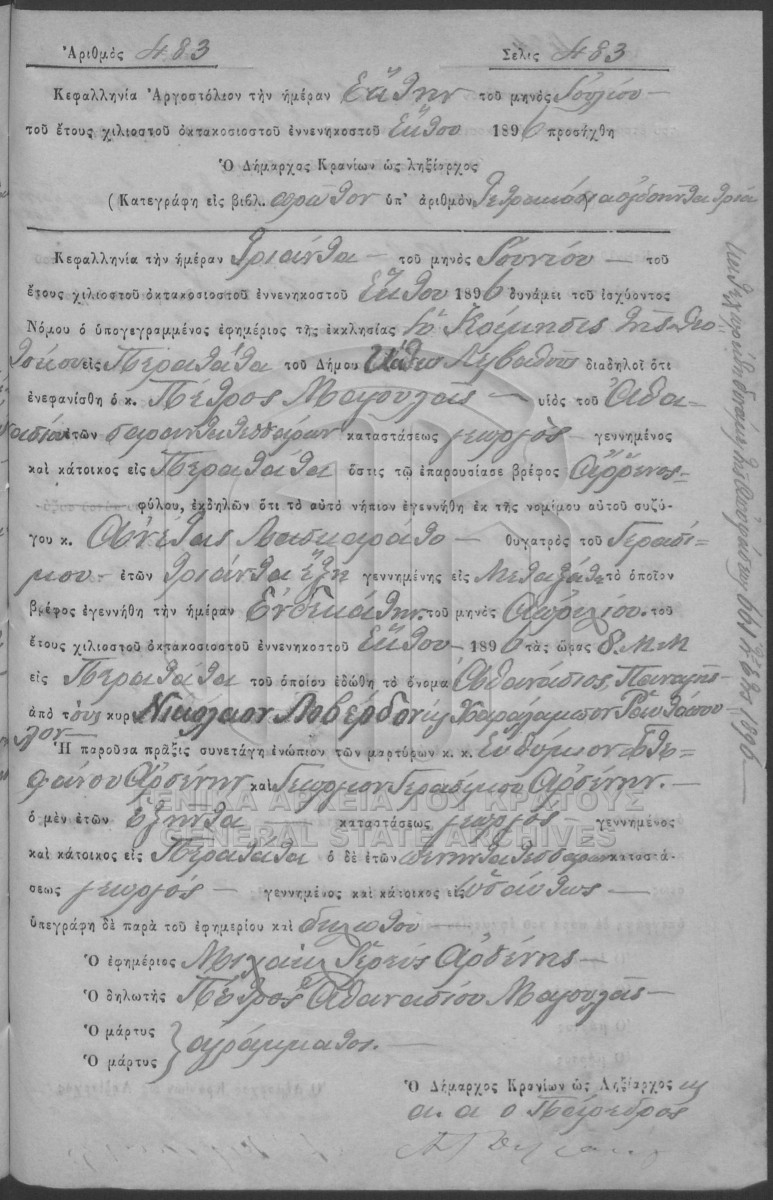 Ἀριθμὸς 483 Σελὶς 483
Κεφαλληνία Ἀργοστόλιον τὴν ἡμέραν Ἕκτην τοῦ μηνὸς Ἰουλίου
τοῦ ἔτους χιλιοστοῦ ὀκτακοσιοστοῦ ἐννενηκοστοῦ Ἕκτου 1896 προσήχθη
Ὁ Δήμαρχος Κρανίων ὡς ληξίαρχος
(Κατεγράφη εἰς βιβλ. πρῶτον ὑπ' ἀριθμὸν τετρακόσια ὀγδοήντα τρία
Κεφαλληνία τὴν ἡμέραν Τριάντα τοῦ μηνὸς Ἰουνίου τοῦ
ἔτους χιλιοστοῦ ὀκτακοσιοστοῦ ἐννενηκοστοῦ Ἕκτου 1896 δυνάμει τοῦ ἰσχύοντος
Νόμου ὁ ὑπογεγραμμένος ἐφημέριος τῆς ἐκκλησίας ἡ Κοίμησις τῆς Θεο
τόκου εἰς Περατάτα τοῦ Δήμου Λειβαθοῦς διαδηλοῖ ὅτι
ἐνεφανίσθη ὁ κ. Πέτρος Μαγουλᾶς υἱὸς τοῦ Ἀθα-
νασίου ἐτῶν σαραντατεσσάρων καταστάσεως γεωργὸς γεννημένος
καὶ κάτοικος εἰς Περατάτα ὅστις τῷ ἐπαρουσίασε βρέφος ἄρρενος
φύλου, ἐκδηλῶν ὅτι τὸ αὐτὸ νήπιον ἐγεννήθη ἐκ τῆς νομίμου αὐτοῦ συζύ-
γου κ. Ἀνέτας Λασκαράτο θυγατρὸς τοῦ Γερασί-
μου ἐτῶν τριάντα ἕξη γεννημένης εἰς Μεταξάτα τὸ ὁποῖον
βρέφος ἐγεννήθη τὴν ἡμέραν Ἑνδεκάτην τοῦ μηνὸς Ἀπριλίου τοῦ
ἔτους χιλιοστοῦ ὀκτακοσιοστοῦ ἐννενηκοστοῦ Ἕκτου 1896 τὰς ὥρας 8. Μ.Μ
εἰς Περατάτα τοῦ ὁποίου ἐδώθη τὸ ὄνομα Ἀθανάσιος, Παναγῆς
ἀπὸ τοὺς κυρ Νικόλαον Λοβέρδον καὶ Χαράλαμπον Ραυτόπου
λον
Ἡ παροῦσα πρᾶξις συνετάγη ἐνώπιον τῶν μαρτύρων κ. κ. Εὐθύμιον Στε-
φάνου Ἀρσένην καὶ Γεώργιον Γερασίμου Ἀρσένην.
ΓΕΝΙΚΑ ΑΡΧΕΙΑ ΤΟΥ ΚΡΑΤΟΥΣ
GENERAL STATE ARCHIVES
ὁ μὲν ἐτῶν ἑξήντα καταστάσεως γεωργὸς γεννημένος
καὶ κάτοικος εἰς Περατάτα ὁ δὲ ἐτῶν πενηντατεσσάρων καταστά-
σεως γεωργὸς γεννημένος καὶ κάτοικος εἰς ὡσαύτως
ὑπεγράφη δὲ παρὰ τοῦ ἐφημερίου καὶ δηλωτοῦ
Ὁ ἐφημέριος Μιχαὴλ Ἱερεὺς Ἀρσένης
Ὁ δηλωτὴς Πέτρος Ἀθανασίου Μαγουλᾶς
Ὁ μάρτυς
Ὁ μάρτυς } ἀγράμματος.
Ὁ Δήμαρχος Κρανίων ὡς Ληξίαρχος
α. α ο Πάρεδρος